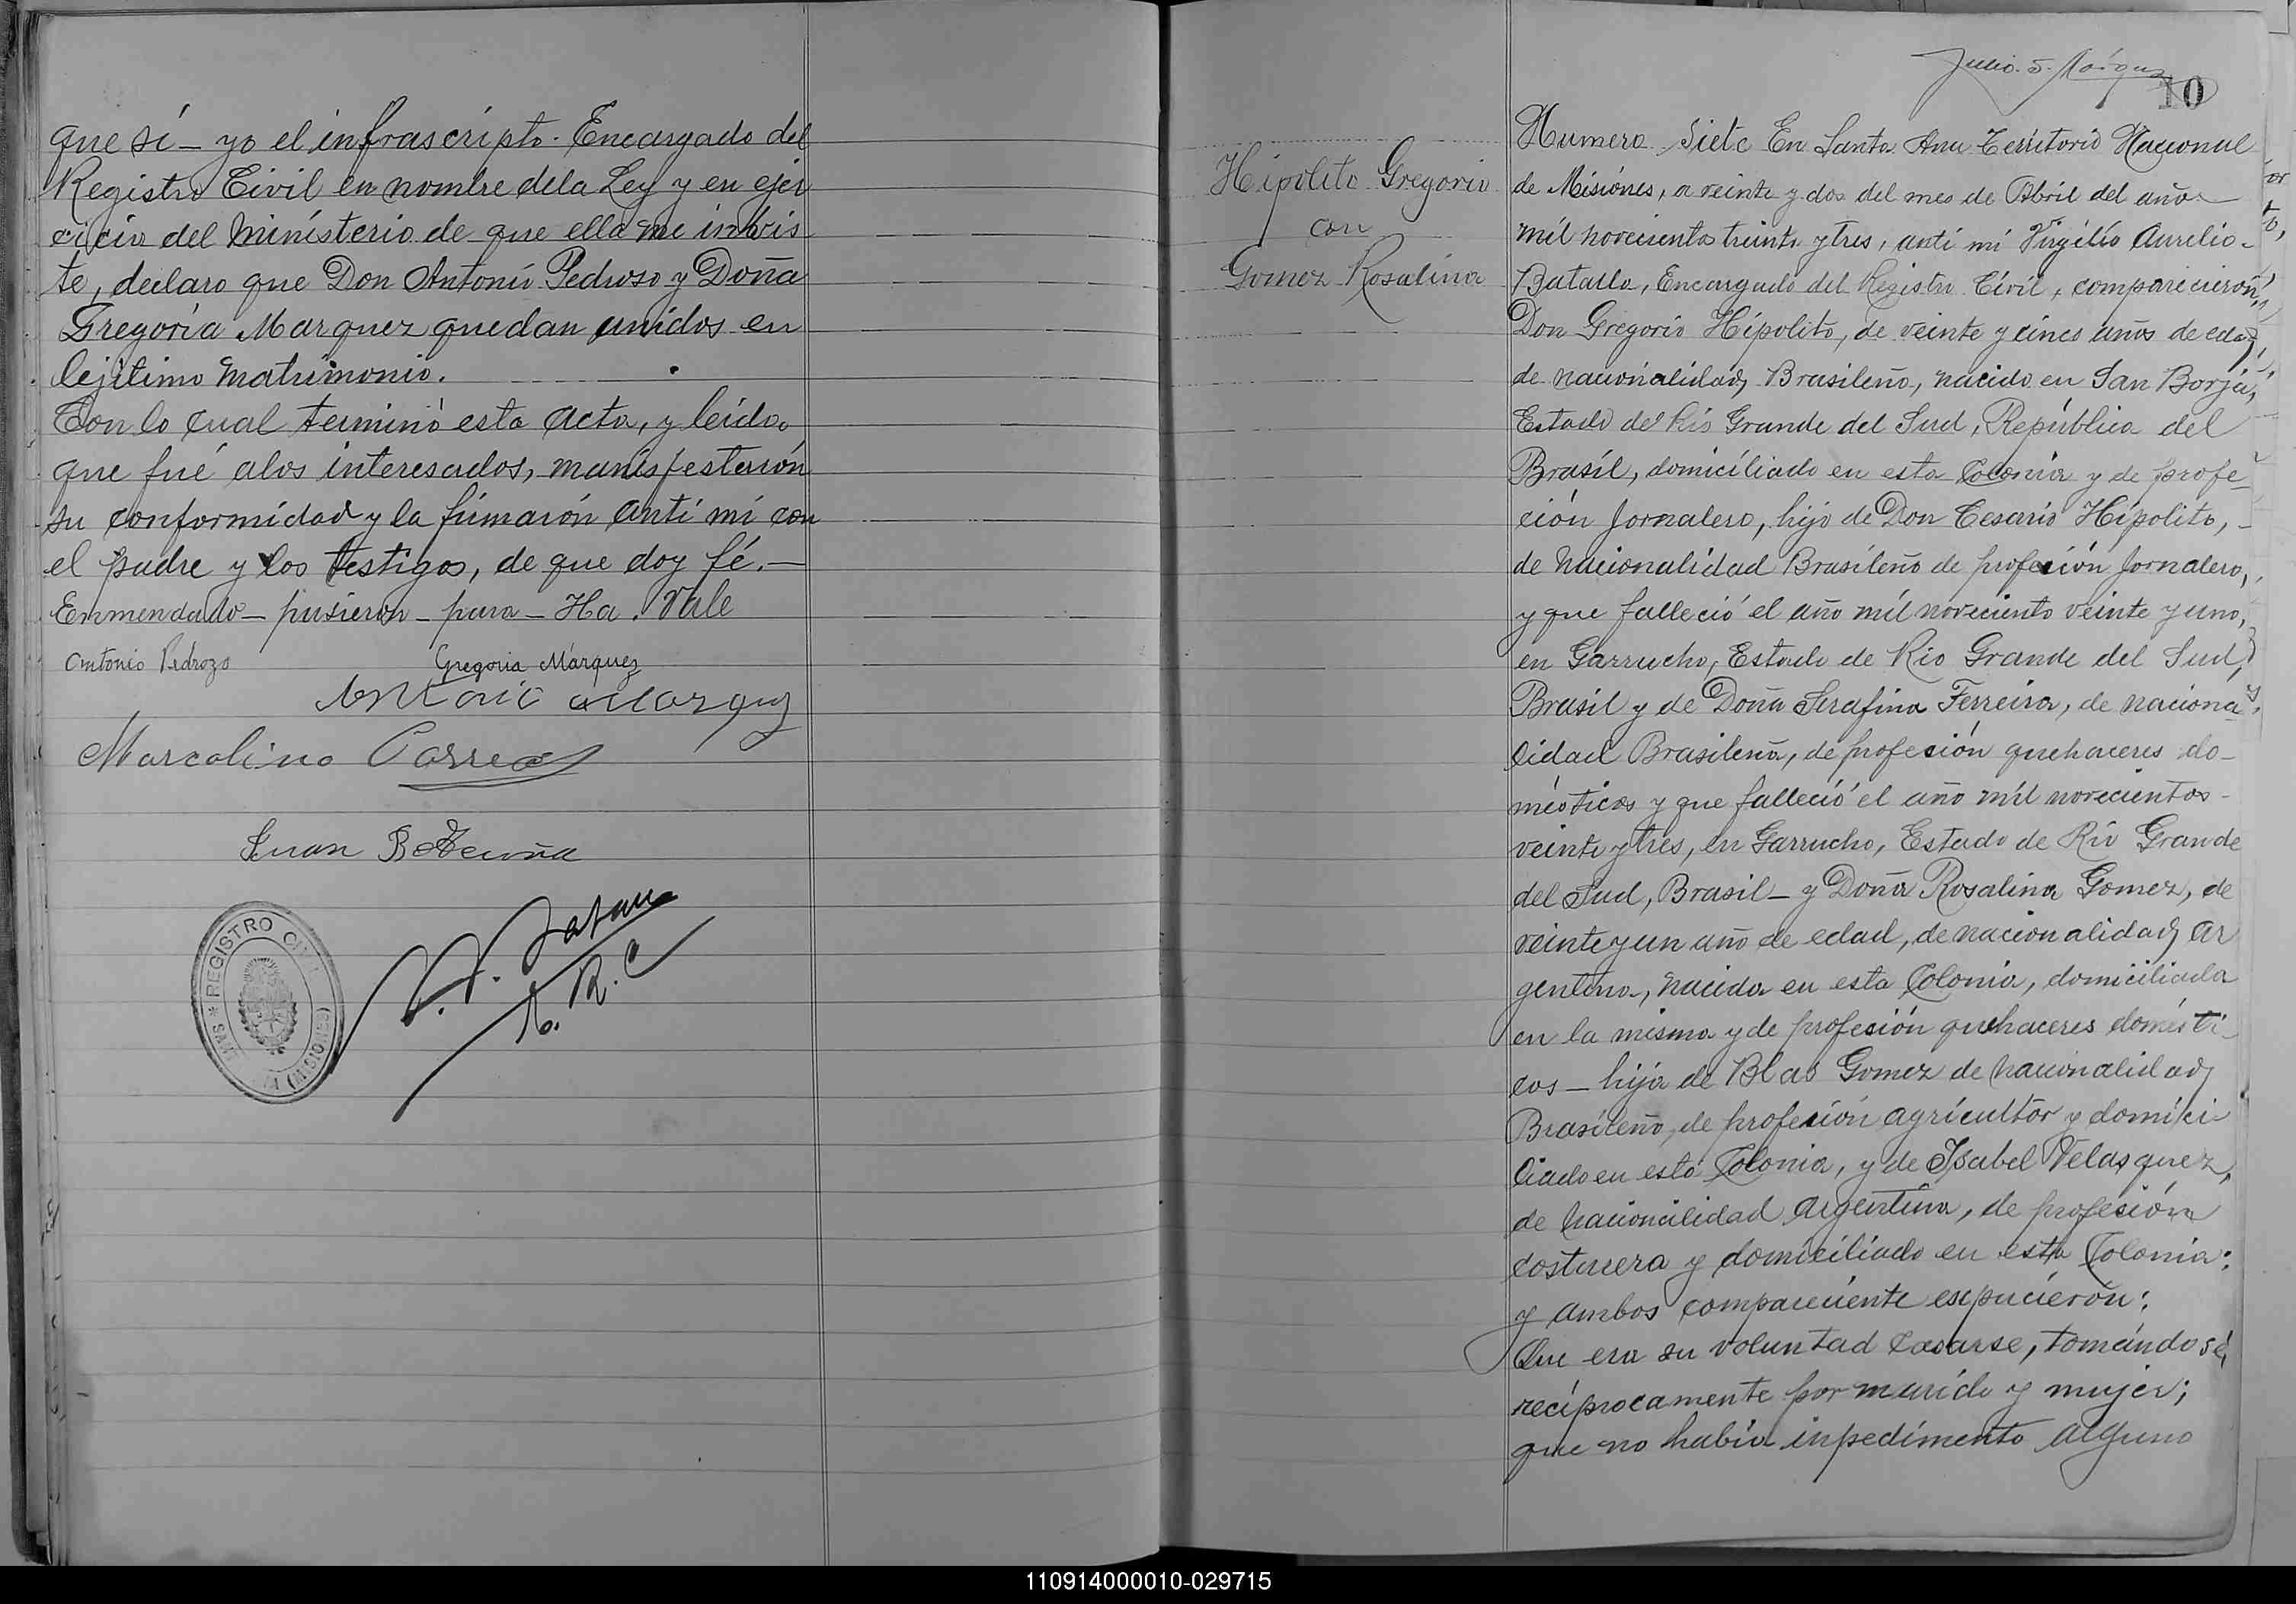 que sí – yo el infrascripto. Encargado del
Registro Civil en nombre dela Ley y en ejer
cicio del Ministerio de que ella me invis
te, declaro que Don Antonio Pedroso y Doña
Gregoria Marquez quedan unidos en
lejitimo Matrimonio.
Con lo cual terminó esta acta, y leida
que fué alos interesados, manisfestarón
su conformidad y la firmarón anti mí con
el padre y los testigos, de que doy fé. –
Enmendado – pusieron – para – Ha. Vale
Antonio Pedrozo
Gregoria Márquez
Antonio Marquez
Marcolino Correa
Juan
REGISTRO CIVIL
(MISIONES)
E. R. C
Julio. S. Márquez
10
Hipolito Gregorio
con
Gomez Rosalina
Numero Siete En Santa Ana Territorio Nacional
de Misiónes, a veinte y dos del mes de Abril del año
mil novecientos treinta y tres, anti mi Virgilio Aurelio
Batalla, Encargado del Registro Civil, comparecierón,
Don Gregorio Hipolito, de veinte y cinco años de edad,
de nacionalidad Brasileño, nacido en San Borja,
Estado de Rio Grande del Sud, República del
Brasil, domiciliado en esta Colonia y de profe
ción Jornalero, hijo de Don Cesario Hipolito, –
de Nacionalidad Brasileño de profeción Jornalero,
y que falleció el año mil noveciento veinte y uno,
en Garrucho, Estado de Rio Grande del Sud,
Brasil y de Doña Serafina Ferreira, de naciona
lidad Brasileña, de profesión quehaceres do–
mésticos y que falleció el año mil novecientos
veinte y tres, en Garrucho, Estado de Rio Grande
del Sud, Brasil – y Doña Rosalina Gomez, de
veinte y un año de edad, de nacionalidad Ar
gentina, nacida en esta Colonia, domiciliada
en la misma y de profesión quehaceres domésti
cos – hija de Blas Gomez de nacionalidad
Brasileño, de profeción agricultor y domici
liado en esta Colonia, y de Isabel Velasquez,
de nacionalidad Argentina, de profeción
costurera y domiciliado en esta Colonia:
y ambos compareciente expucierón:
Que era su voluntad casarse, tomándosé,
recíprocamente por marido y mujer;
que no habia inpedimento alguno
110914000010-029715